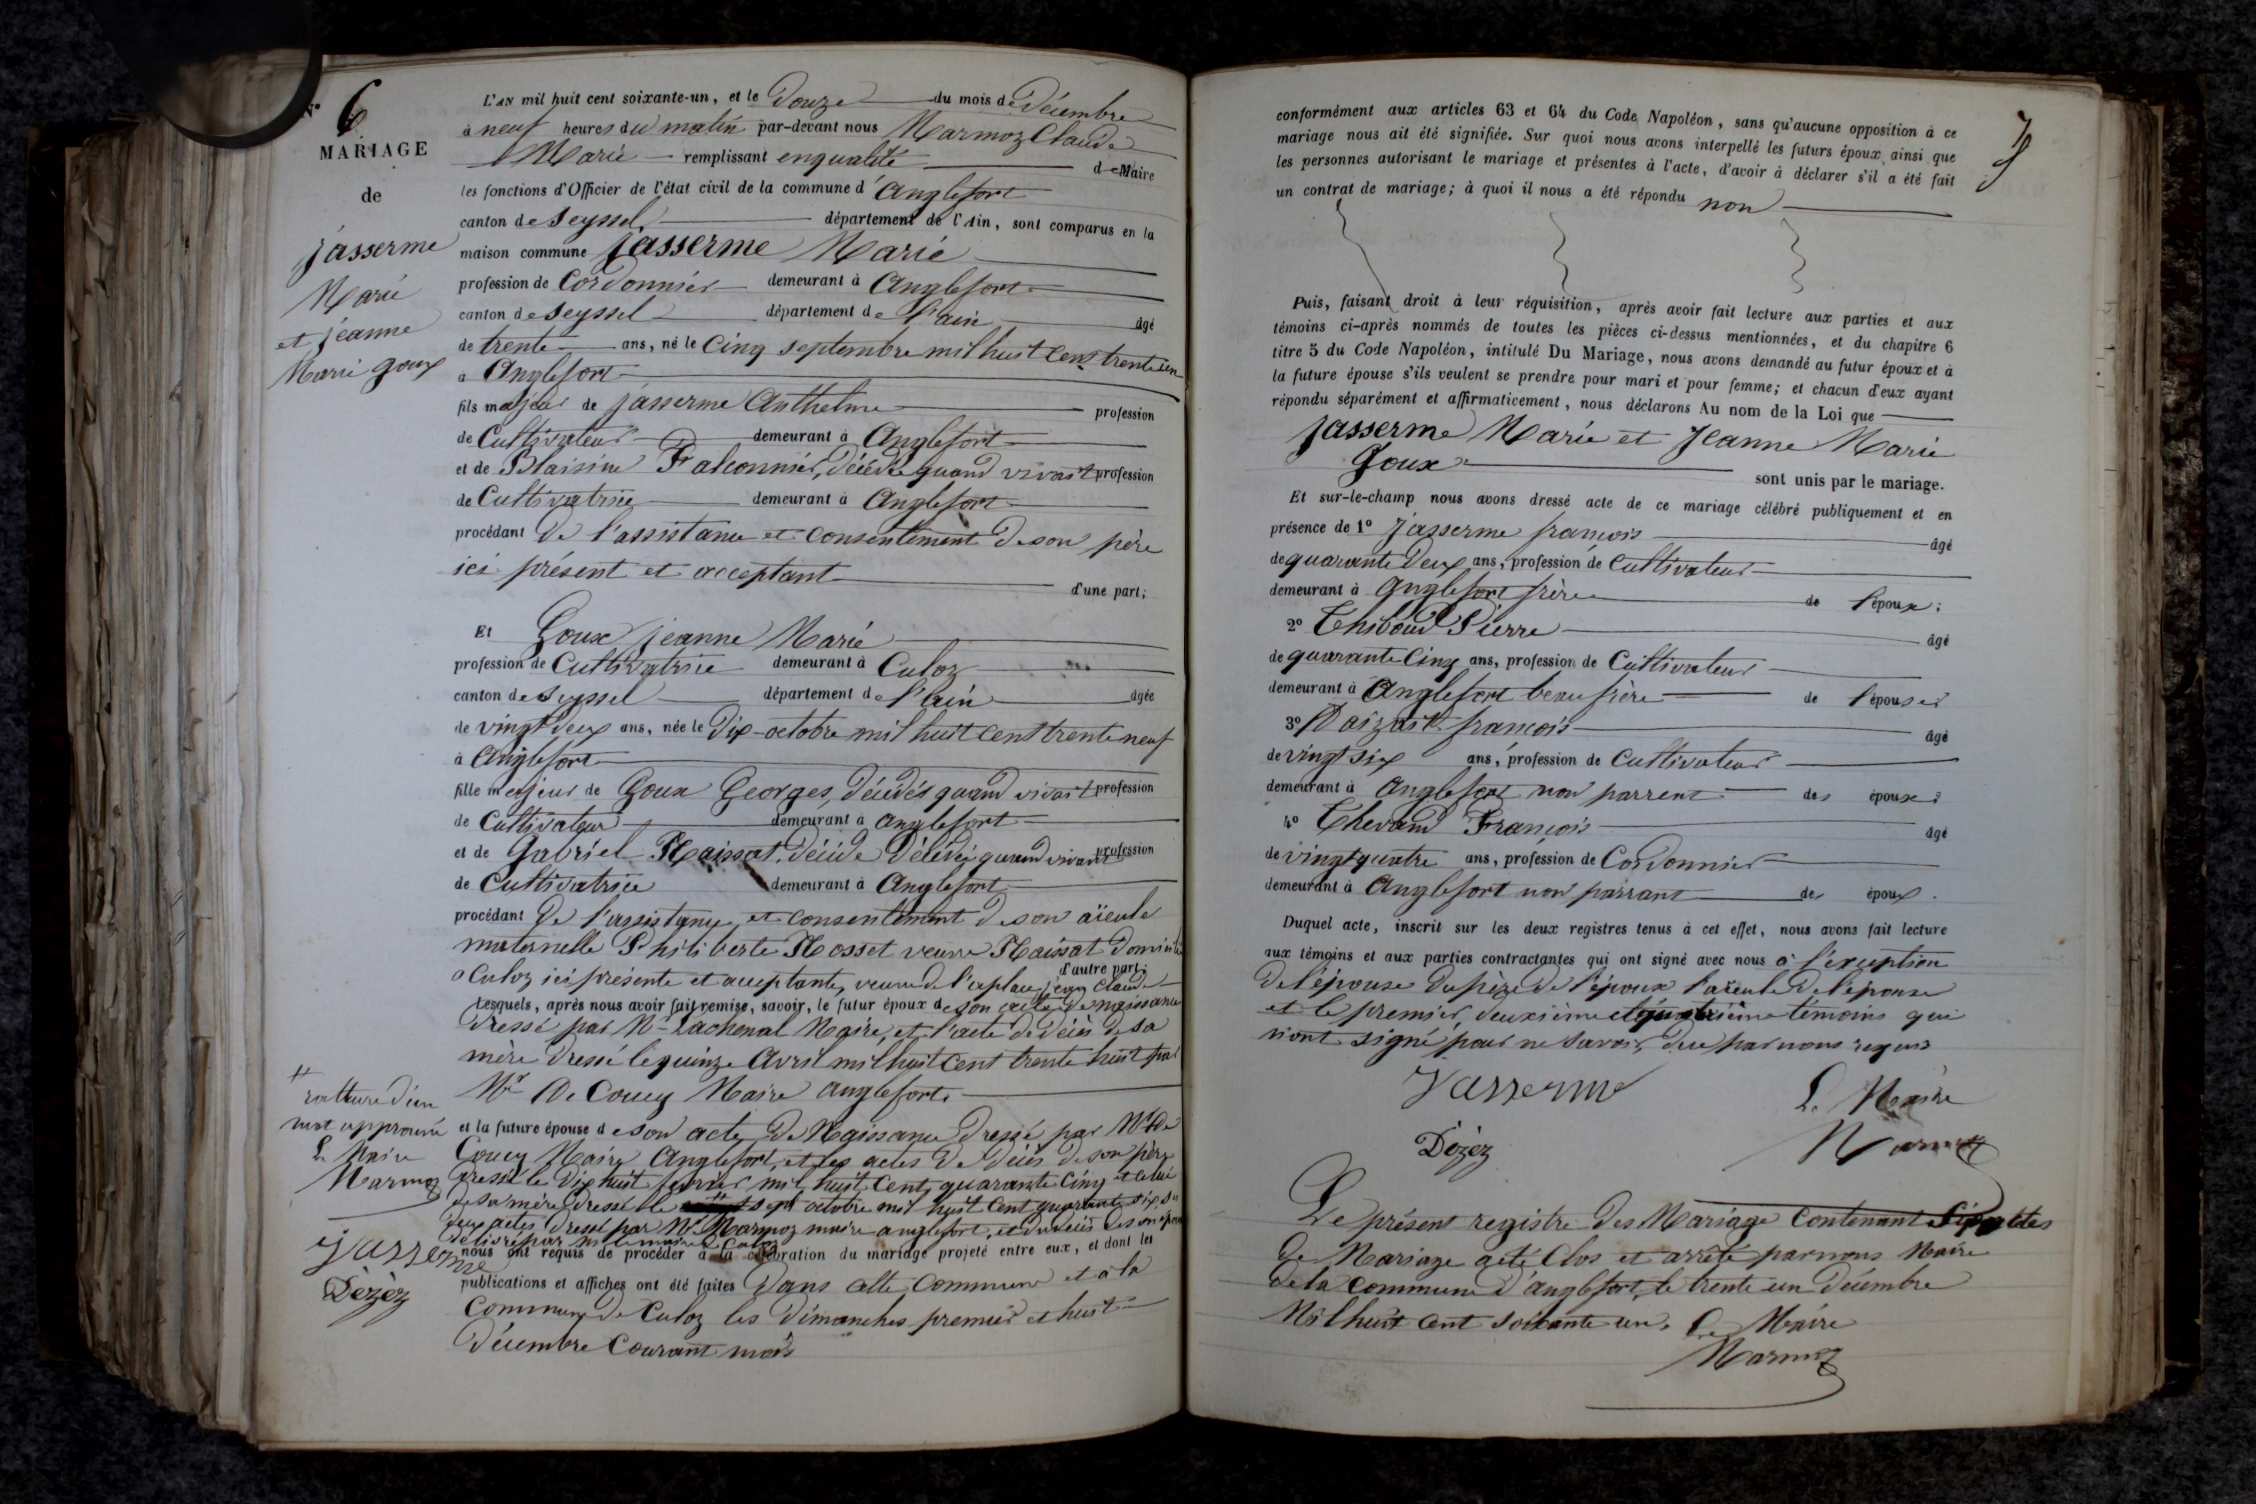 N° 6
MARIAGE
de
Jasserme
Marie
et jeanne
Marie Goux
L'AN mil huit cent soixante-un, et le Douze du mois de Décembre
à neuf heures du matin par-devant nous Marmoz Claude
Marie remplissant en qualité de Maire
les fonctions d'Officier de l'état civil de la commune d'Anglefort
canton de Seyssel département de l'Ain, sont comparus en la
maison commune Jasserme Marie
profession de Cordonnier demeurant à Anglefort
canton de Seyssel département de l'ain âgé
de trente ans, né le Cinq septembre mil huit cent trente un
à Anglefort
fils majeur de Jasserme Anthelme profession
de Cultivateur demeurant à Anglefort
et de Blaisine Falconnier, décédé quand vivait profession
de Cultivatrice demeurant à Anglefort
procédant De l'assistance et consentement de son père
ici présent et acceptant d'une part;
Et Goux jeanne Marie
profession de Cultivatrice demeurant à Culoz
canton de Seyssel département de l'ain âgée
de vingt deux ans, née le Dix octobre mil huit cent trente neuf
à Anglefort
fille majeur de Goux Georges, décédés quand vivait profession
de Cultivateur demeurant à Anglefort
et de Gabriel Maissat, décédé quand vivant profession
de Cultivatrice demeurant à Anglefort
procédant De l'assistance et consentement de son aïeule
maternelle Philiberte Mosset veuve Maissat Domicilié
a Culoz ici présente et acceptante, veuve de jeny Claude
d'autre part;
Lesquels, après nous avoir fait remise, savoir, le futur époux de son acte de naissance
Dressé par Mr Lachenal Maire, et l'acte de Décès de sa
mère Dressé le quinze Avril mil huit cent trente huit par
Mr De Coucy Maire anglefort
et la future épouse de son acte De Naissance Dressé par Mr De
Coucy Maire Anglefort, et les actes De décès de son père
Dressé le Dix huit février mil huit cent quarante Cinq et celui
de sa mère Dressé le sept octobre mil huit cent quarante six,
Deux actes Dressé par Mr Marmoz maire anglefort, et
délivré par Mr le maire de Culoz
nous ont requis de procéder à la célébration du mariage projeté entre eux, et dont les
publications et affiches ont été faites Dans cette Commune et à la
Commune de Culoz les Dimanches premier et huit
Décembre Courant mois
rature d'un
mot approuvé
Le Maire
Marmoz
Jasserme
Dèzèz
7
conformément aux articles 63 et 64 du Code Napoléon, sans qu'aucune opposition à ce
mariage nous ait été signifiée. Sur quoi nous avons interpellé les futurs époux, ainsi que
les personnes autorisant le mariage et présentes à l'acte, d'avoir à déclarer s'il a été fait
un contrat de mariage; à quoi il nous a été répondu non
Puis, faisant droit à leur réquisition, après avoir fait lecture aux parties et aux
témoins ci-après nommés de toutes les pièces ci-dessus mentionnées, et du chapitre 6
titre 5 du Code Napoléon, intitulé Du Mariage, nous avons demandé au futur époux et à
la future épouse s'ils veulent se prendre pour mari et pour femme; et chacun d'eux ayant
répondu séparément et affirmativement, nous déclarons Au nom de la Loi que
Jasserme Marie et Jeanne Marie
Goux sont unis par le mariage.
Et sur-le-champ nous avons dressé acte de ce mariage célébré publiquement et en
présence de 1° Jasserme françois âgé
de quarante Deux ans, profession de Cultivateur
demeurant à Anglefort frère de l'époux;
2° Thiboud Pierre âgé
de quarante Cinq ans, profession de Cultivateur
demeurant à Anglefort beau frère de l'épouse
3° françois âgé
de vingt six ans, profession de Cultivateur
demeurant à Anglefort non parrent des époux;
4° Thevand François âgé
de vingt quatre ans, profession de Cordonnier
demeurant à Anglefort non parrant des époux.
Duquel acte, inscrit sur les deux registres tenus à cet effet, nous avons fait lecture
aux témoins et aux parties contractantes qui ont signé avec nous à l'exception
De l'épouse Du père De l'époux l'aïeule De l'épouse
et le premier, deuxième et quatrième témoins qui
n'ont signé pour ne savoir, De ce par nous requis
Jasserme
Le Maire
Dèzèz
Marmoz
Le présent registre Des Mariage Contenant Six actes
De Mariage a été Clos et arrêté par nous Maire
de la Commune d'Anglefort, le trente un Décembre
Mil huit cent soixante un. Le Maire
Marmoz